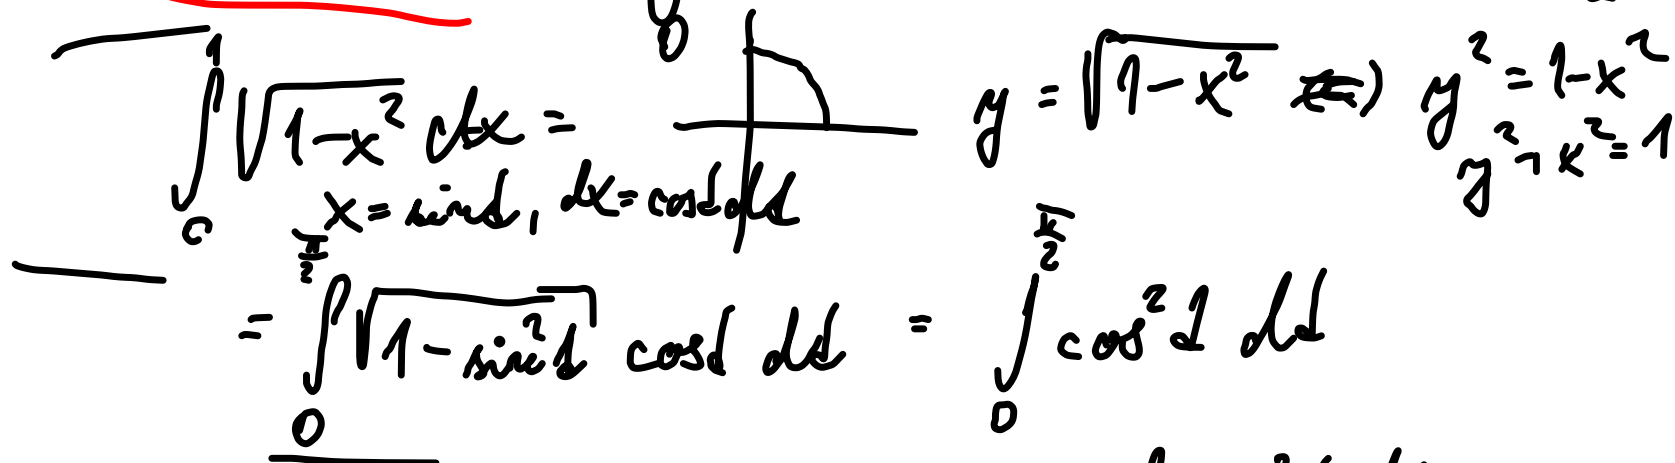 ∫₀¹ √(1-x²) dx =
y = √(1-x²) ⇔ y² = 1-x²
y² + x² = 1
x = sin t, dx = cos t dt
= ∫₀^(π/2) √(1 - sin² t) cos t dt = ∫₀^(π/2) cos² t dt